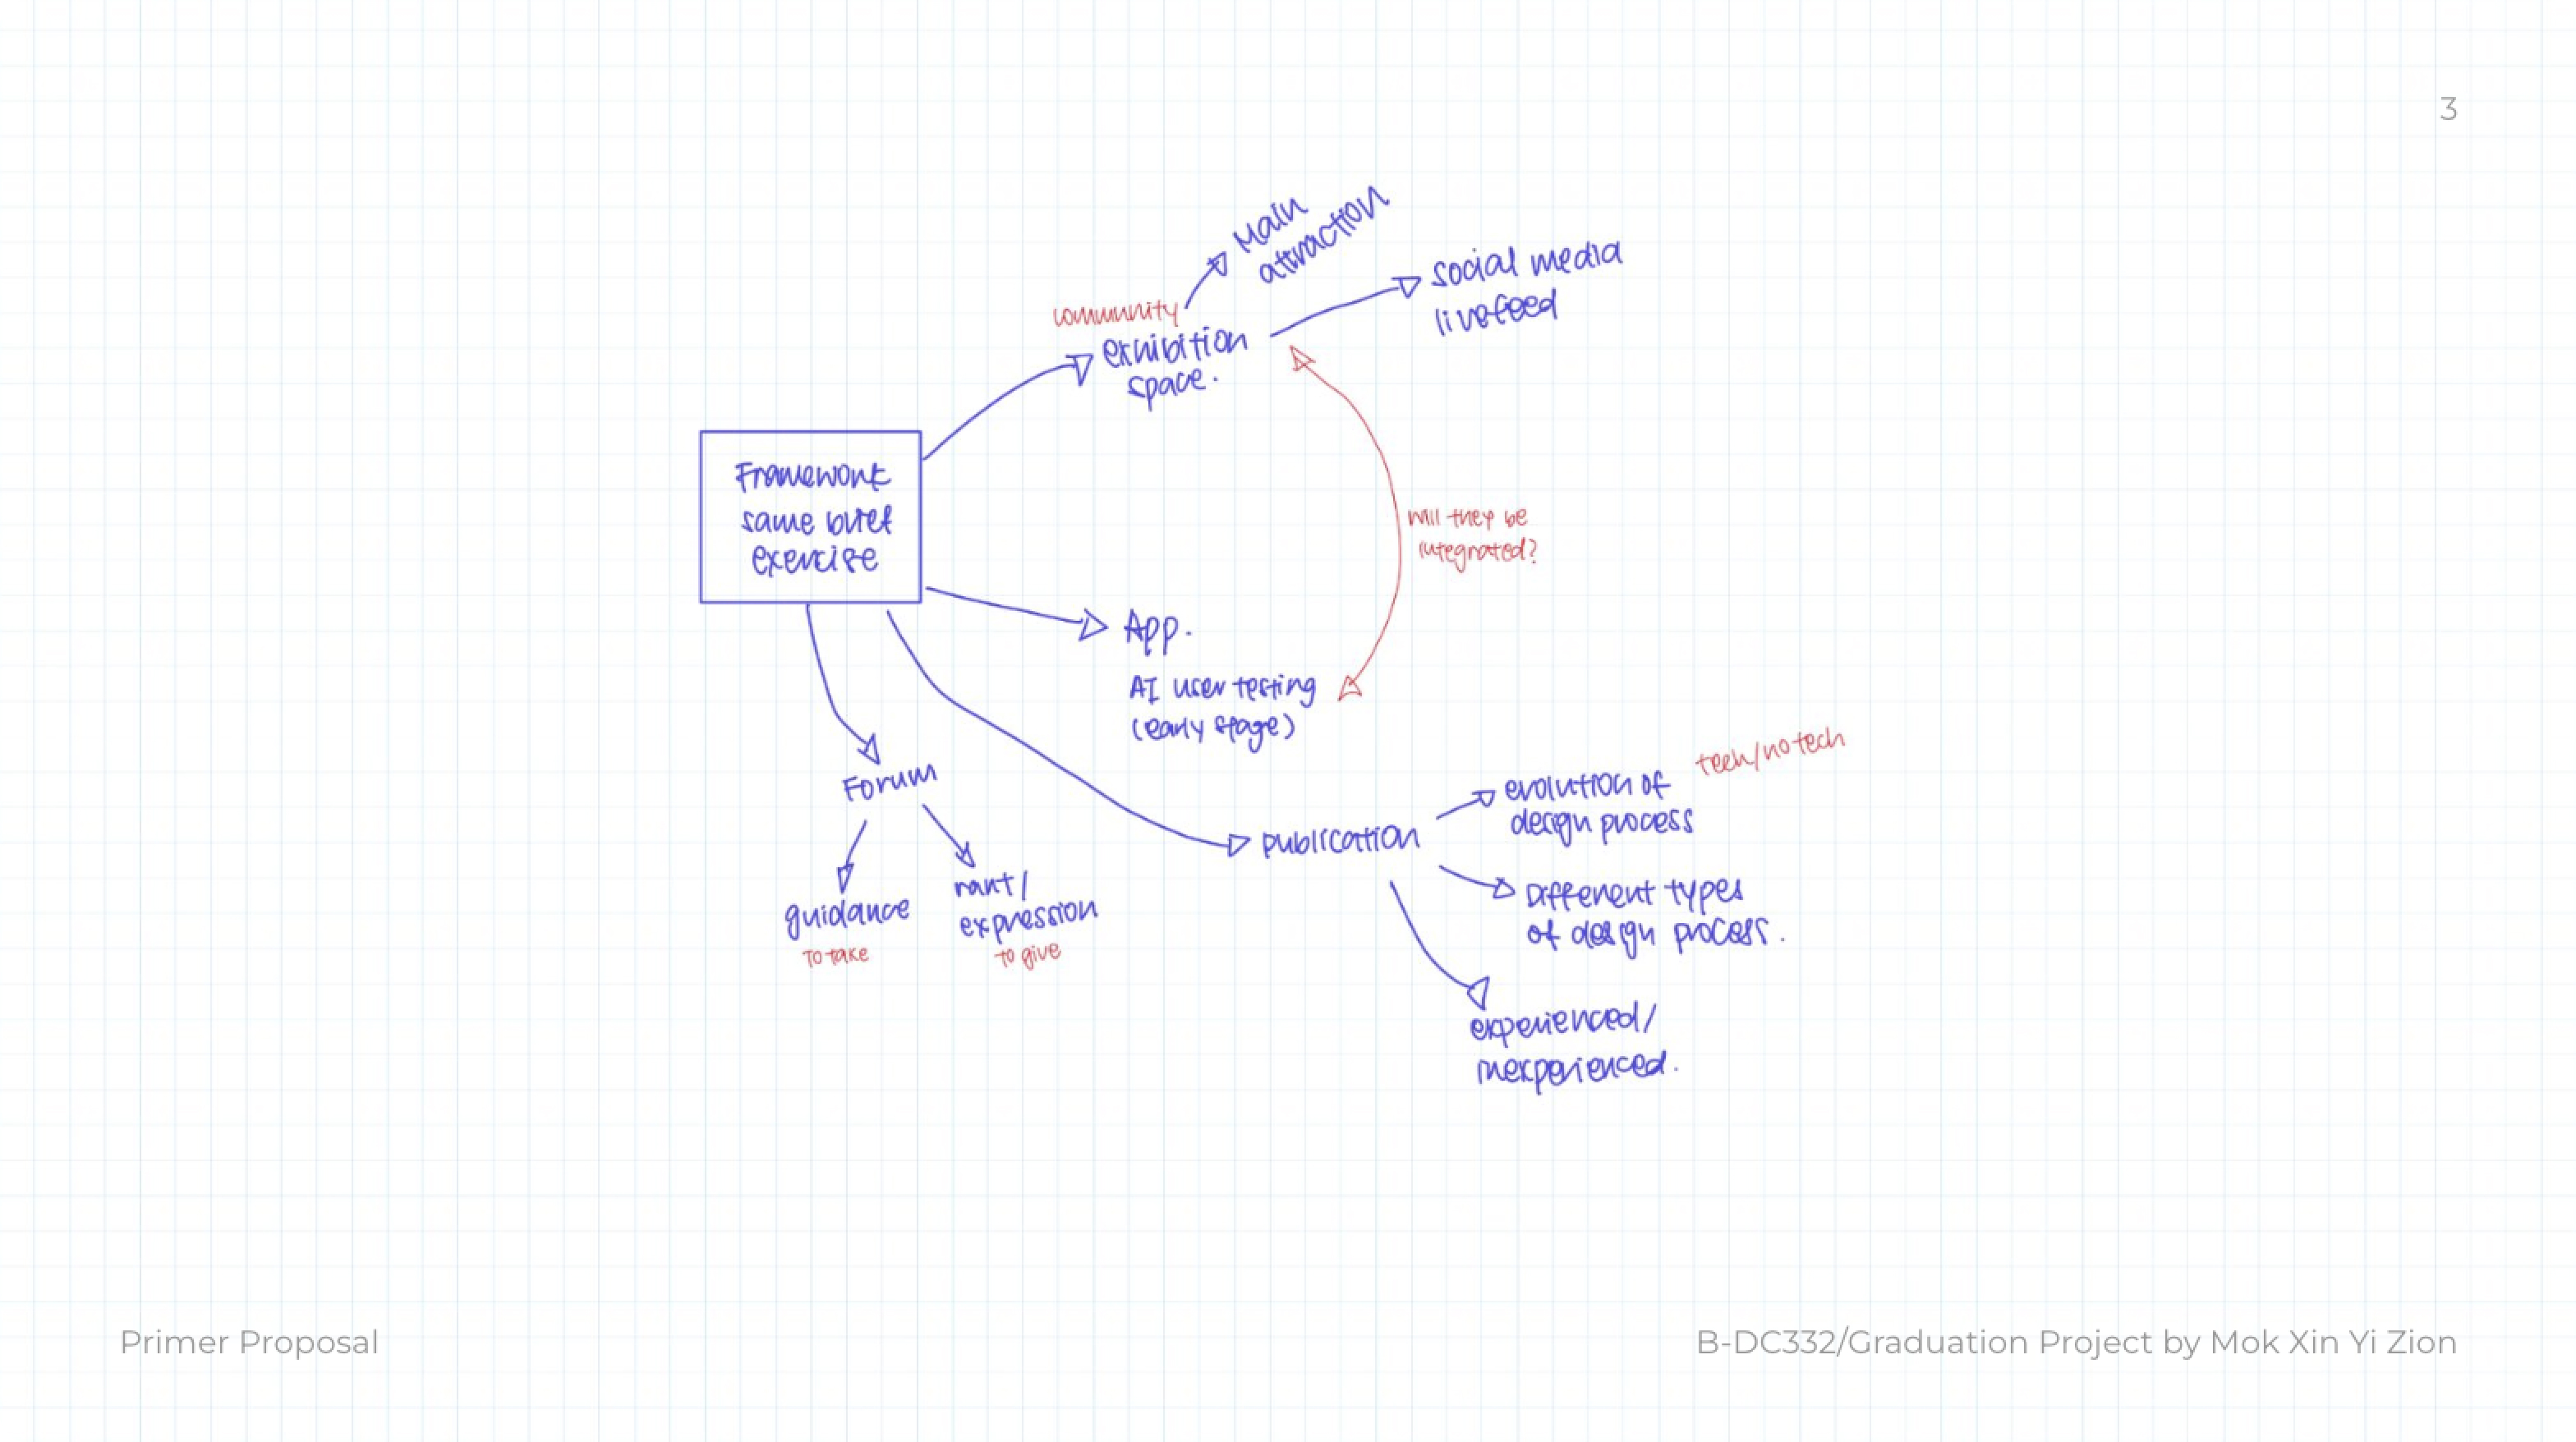 3
Main
attraction
social media
livefeed
community
exhibition
space.
Framework
same brief
exercise
will they be
integrated?
App.
AI user testing
(early stage)
Forum
guidance
to take
rant/
expression
to give
publication
evolution of
design process
tech/no tech
Different types
of design process.
experienced/
inexperienced.
Primer Proposal
B-DC332/Graduation Project by Mok Xin Yi Zion